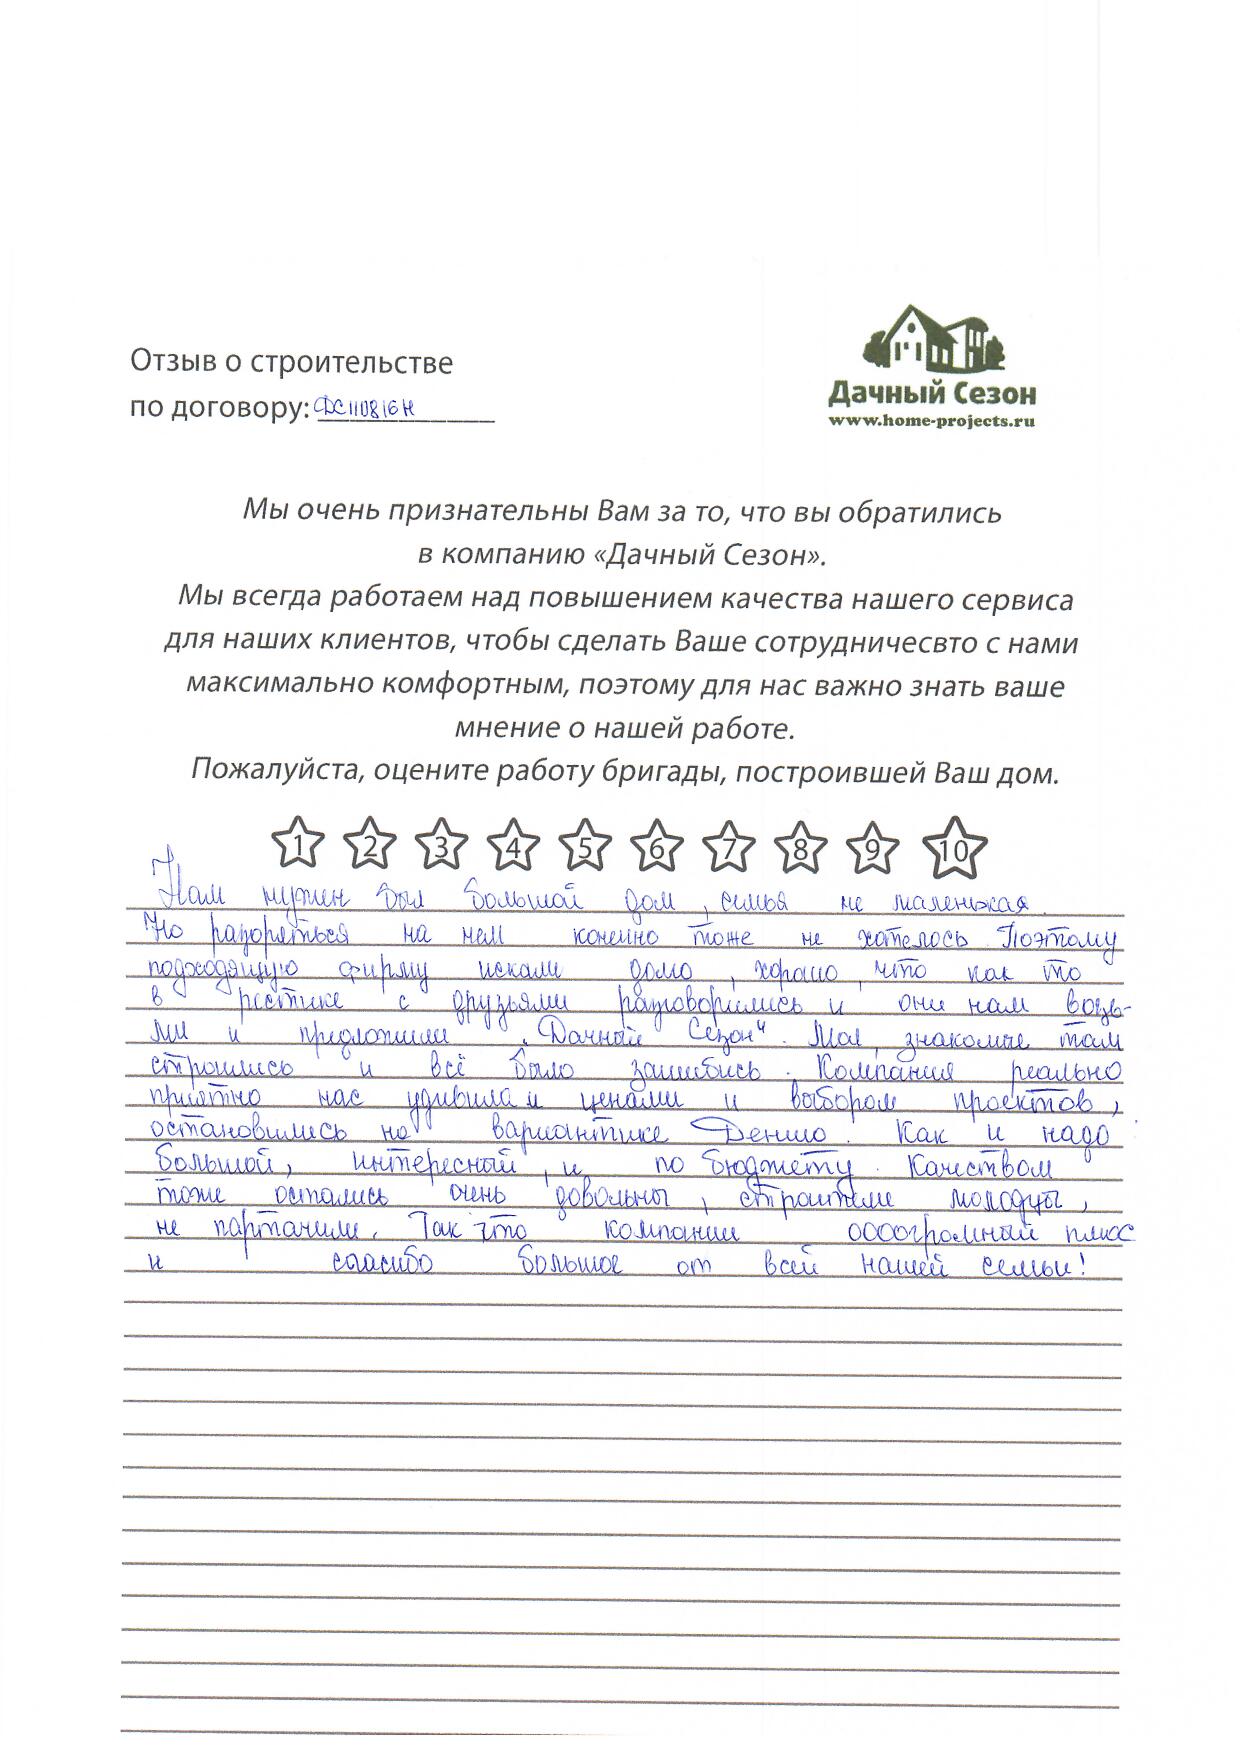 Отзыв о строительстве
по договору: ДС110816Н
Дачный Сезон
www.home-projects.ru
Мы очень признательны Вам за то, что вы обратились
в компанию «Дачный Сезон».
Мы всегда работаем над повышением качества нашего сервиса
для наших клиентов, чтобы сделать Ваше сотрудничесвто с нами
максимально комфортным, поэтому для нас важно знать ваше
мнение о нашей работе.
Пожалуйста, оцените работу бригады, построившей Ваш дом.
1 2 3 4 5 6 7 8 9 10
Нам нужен был большой дом, семья не маленькая.
Но разоряться на нем конечно тоже не хотелось. Поэтому
подходящую фирму искали долго, хорошо, что как то
в рестике с друзьями разговорились и они нам возь-
ми и предложили „Дачный Сезон". Мол, знакомые там
строились и всё было зашибись. Компания реально
приятно нас удивила и ценами и выбором проектов,
остановились на вариантике Денио. Как и надо
большой, интересный, и по бюджету. Качеством
тоже остались очень довольны, строители молодцы,
не партачили. Так что компании оооогромный плюс
и спасибо большое от всей нашей семьи!